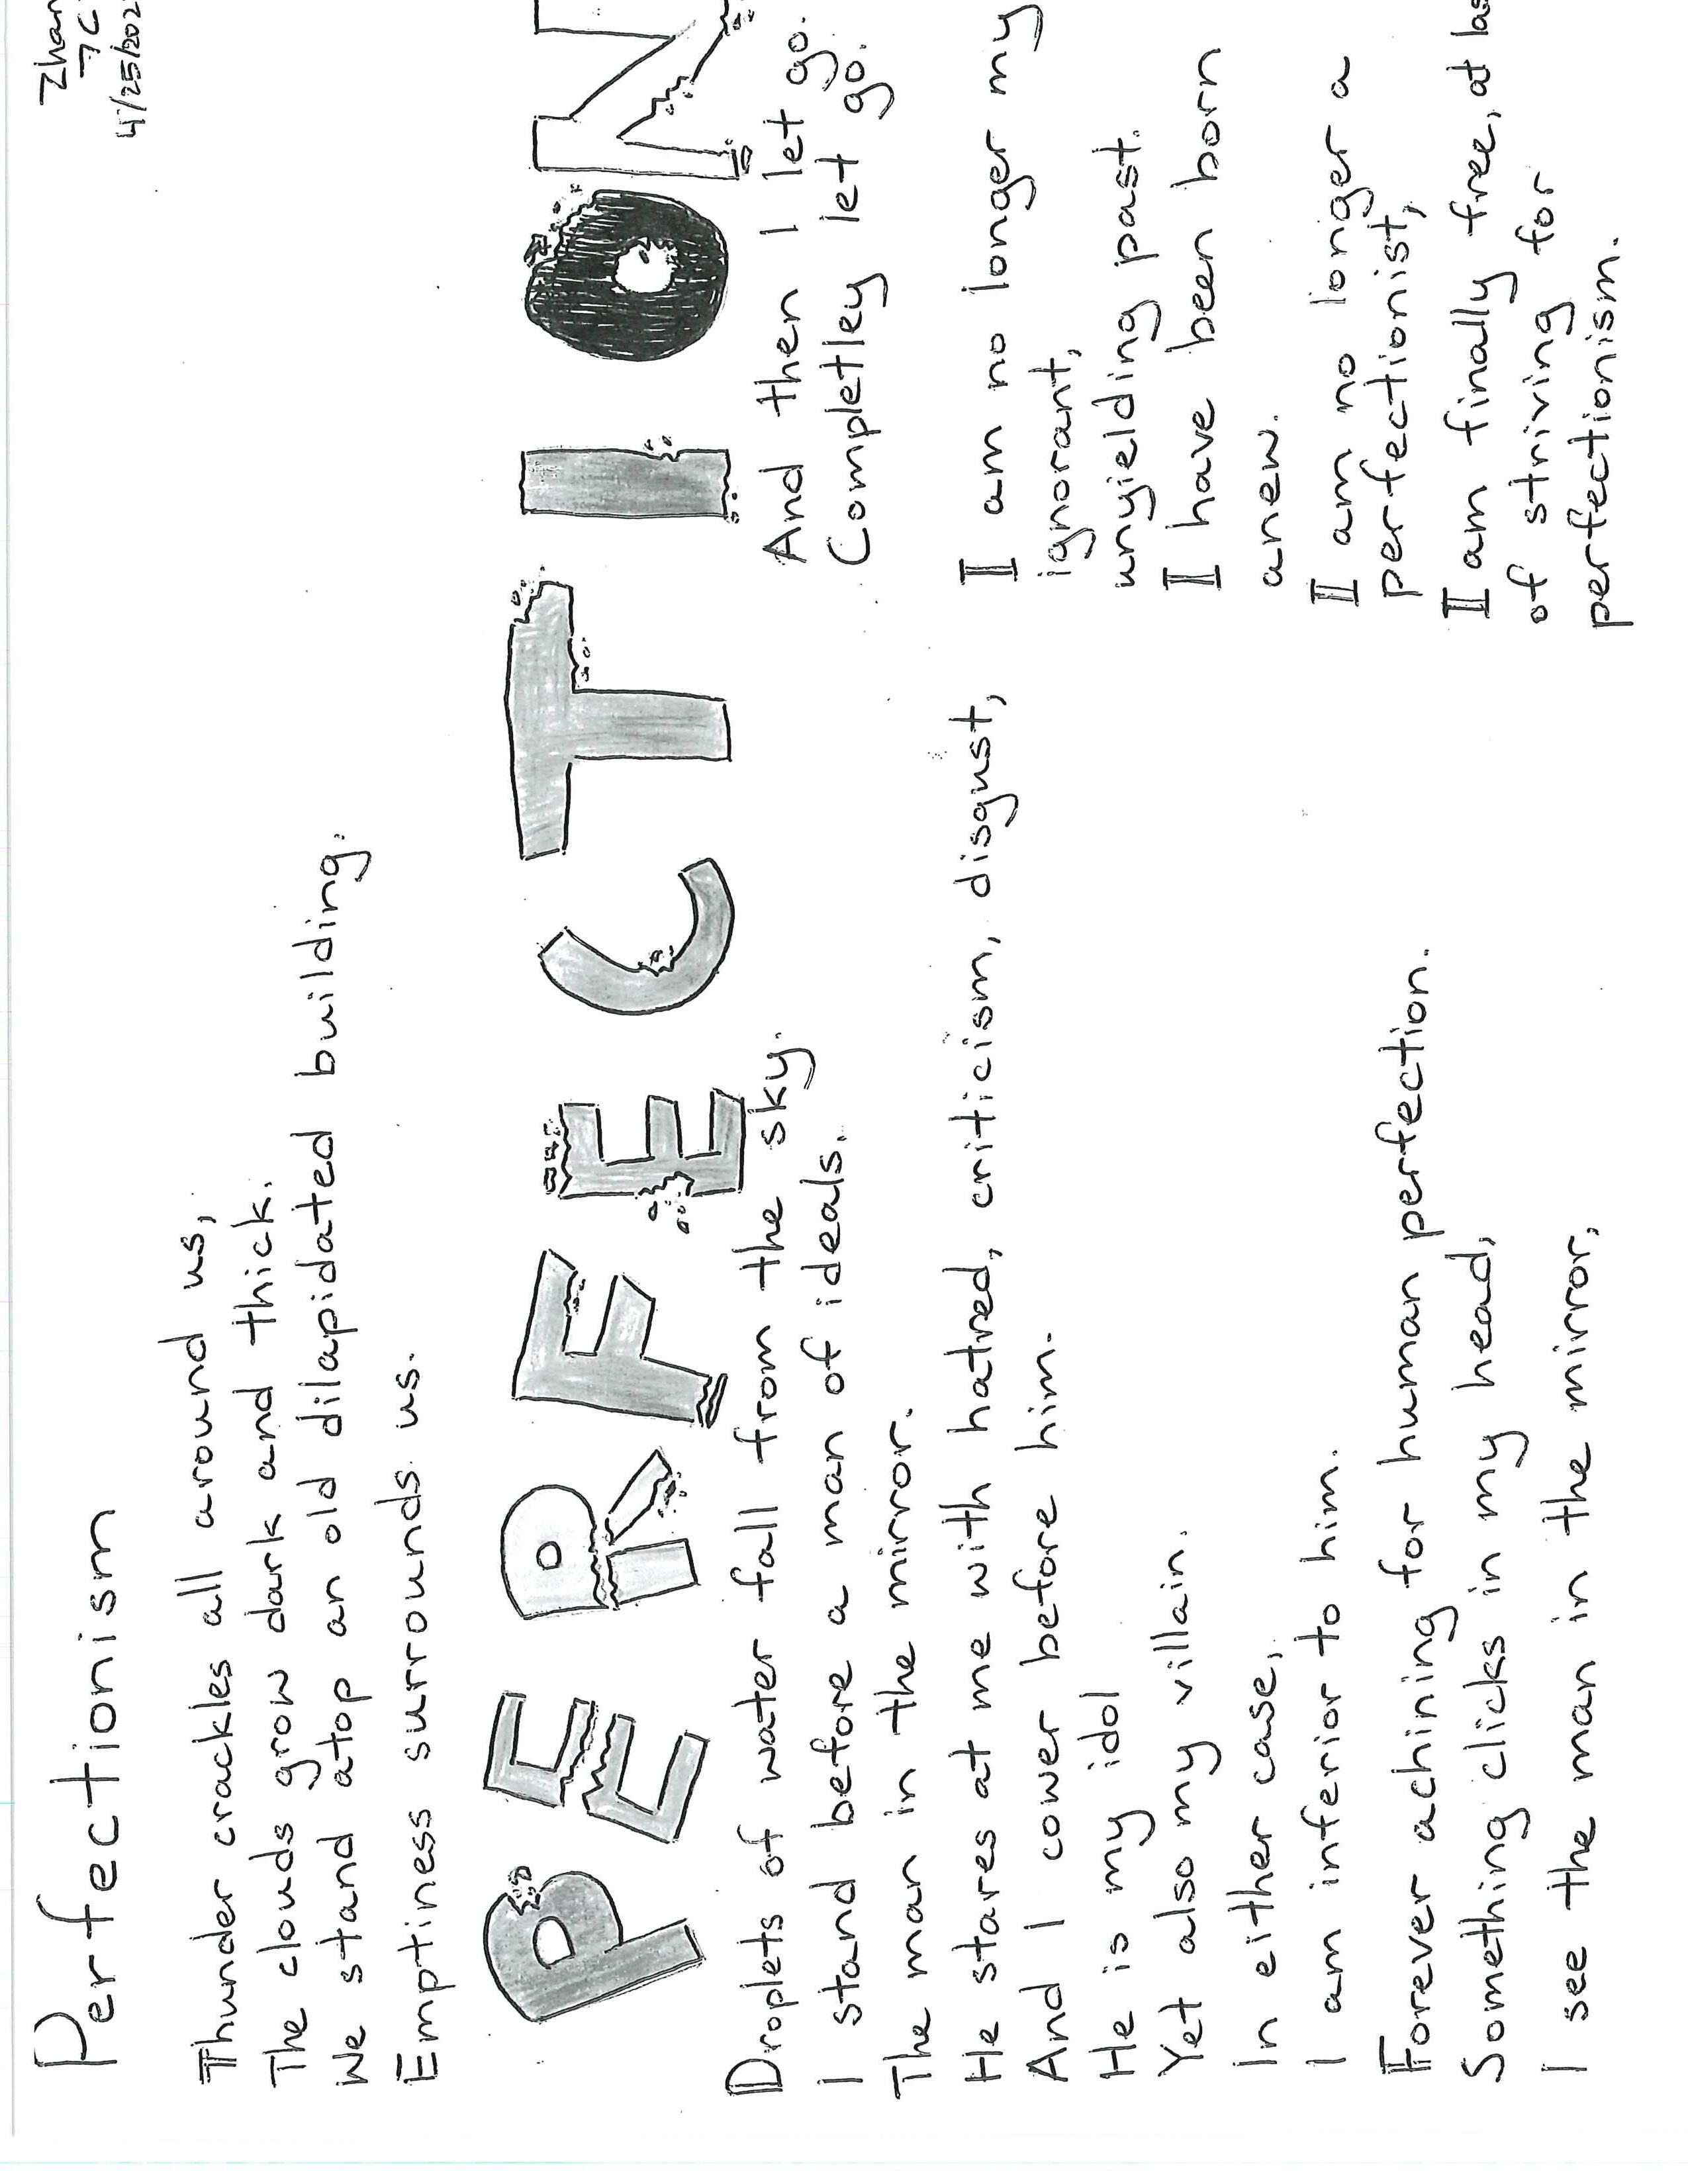 Perfectionism
7C
Thunder crackles all around us,
The clouds grow dark and thick.
We stand atop an old dilapidated building.
Emptiness surrounds us.
PERFECTION
Droplets of water fall from the sky.
I stand before a man of ideals.
The man in the mirror.
He stares at me with hatred, criticism, disgust,
And I cower before him.
He is my idol
Yet also my villain.
In either case,
I am inferior to him.
Forever achining for human perfection.
Something clicks in my head,
I see the man in the mirror,
And then I let go.
Completley let go.
I am no longer my
ignorant,
unyielding past.
I have been born
anew.
I am no longer a
perfectionist,
I am finally free, at
of striving for
perfectionism.